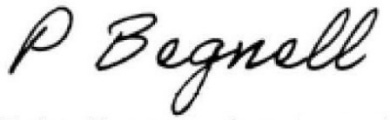 P Begnell